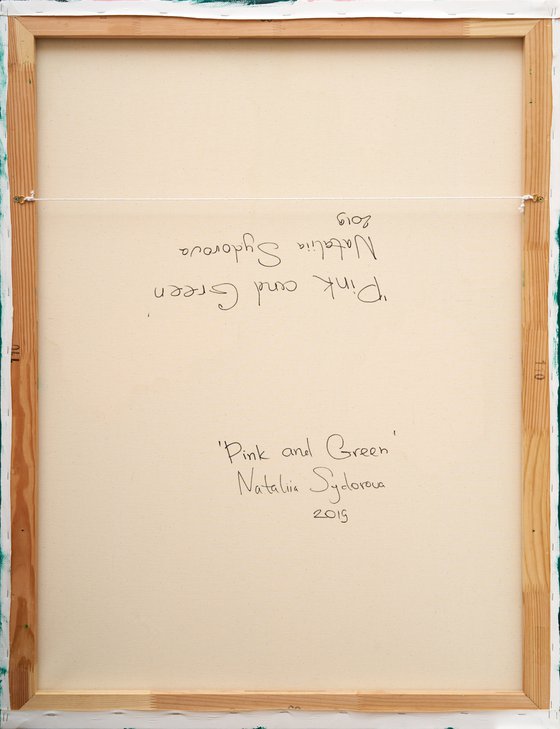 2019
Nataliia Sydorova
'Pink and Green'
110
1:0
'Pink and Green'
Nataliia Sydorova
2019